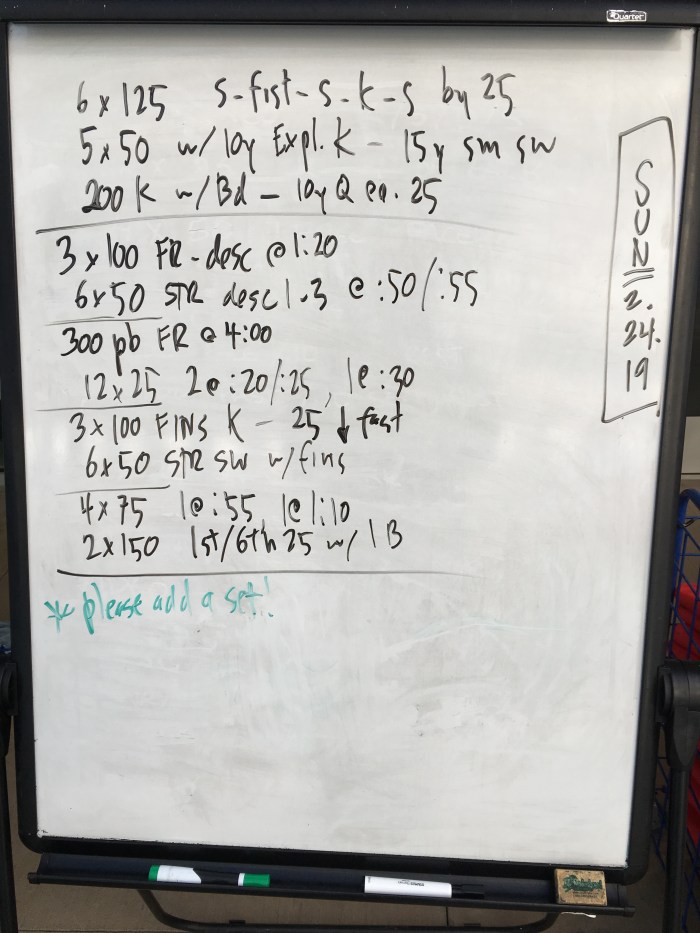 Quartet
6 x 125 S-fist-S-K-S by 25
5 x 50 w/ 10y Expl. K - 15y sm sw
200 K w/ Bd - 10y Q ea. 25
3 x 100 FR - desc @ 1:20
6 x 50 STR desc 1-3 @ :50/:55
300 pb FR @ 4:00
12 x 25 2@ :20/:25, 1@ :30
3 x 100 FINS K - 25 ↓ fast
6x50 STR SW w/ fins
4 x 75 1@ :55 1@ 1:10
2 x 150 1st/6th 25 w/ 1 B
* please add a set!
SUN 2.24.19